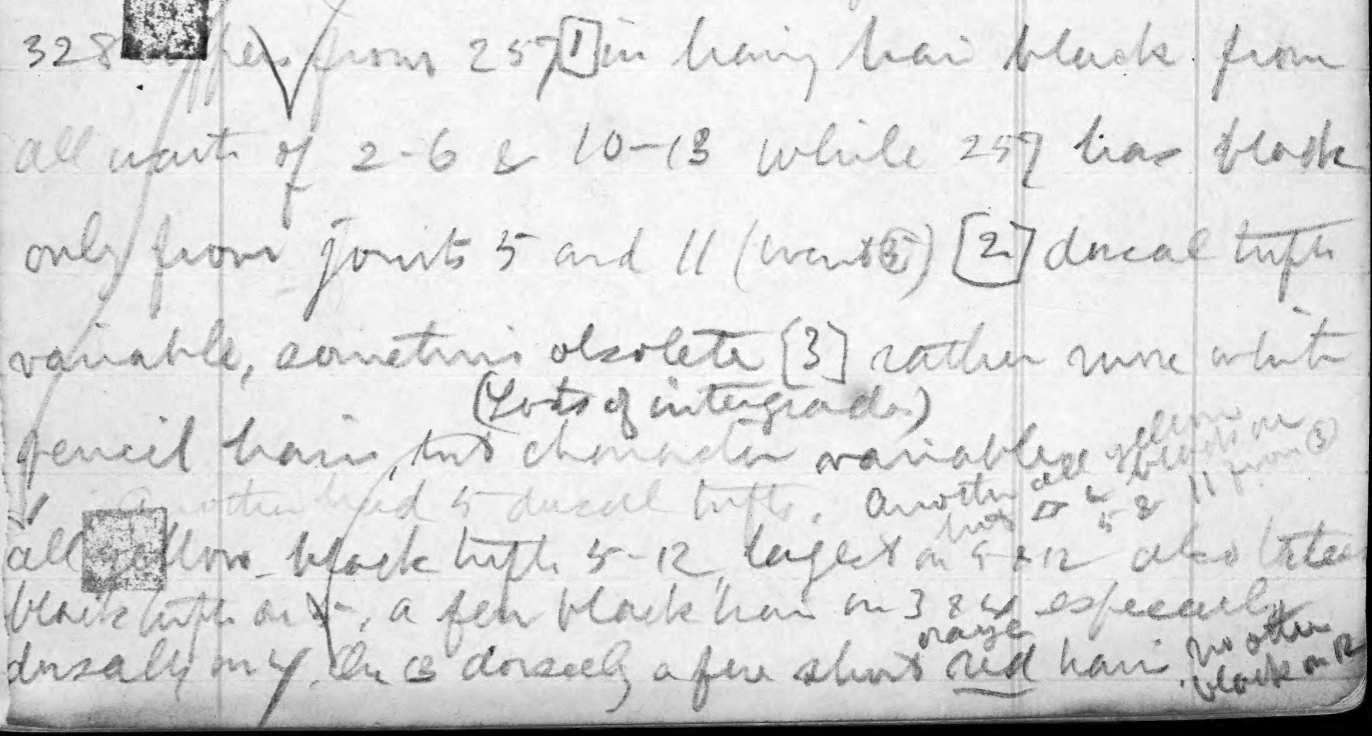 328 differs from 257 [1] in having hair black from
all warts of 2-6 & 10-13 while 257 has black
only from joints 5 and 11 (wart ) [2] dorsal tufts
variable, sometimes obsolete [3] rather more white
(Lots of intergrades)
pencil hairs, but character variable
Another had 5 dorsal tufts. Another all yellow
has 5 & 11
all yellow black tufts 5-12, largest on 5 & 12 also lateral
black tufts on 5, a few black hair on 3 & 4 especially
dorsally on 4. On 3 dorsally a few short red hair.
orange
no other
black on 12